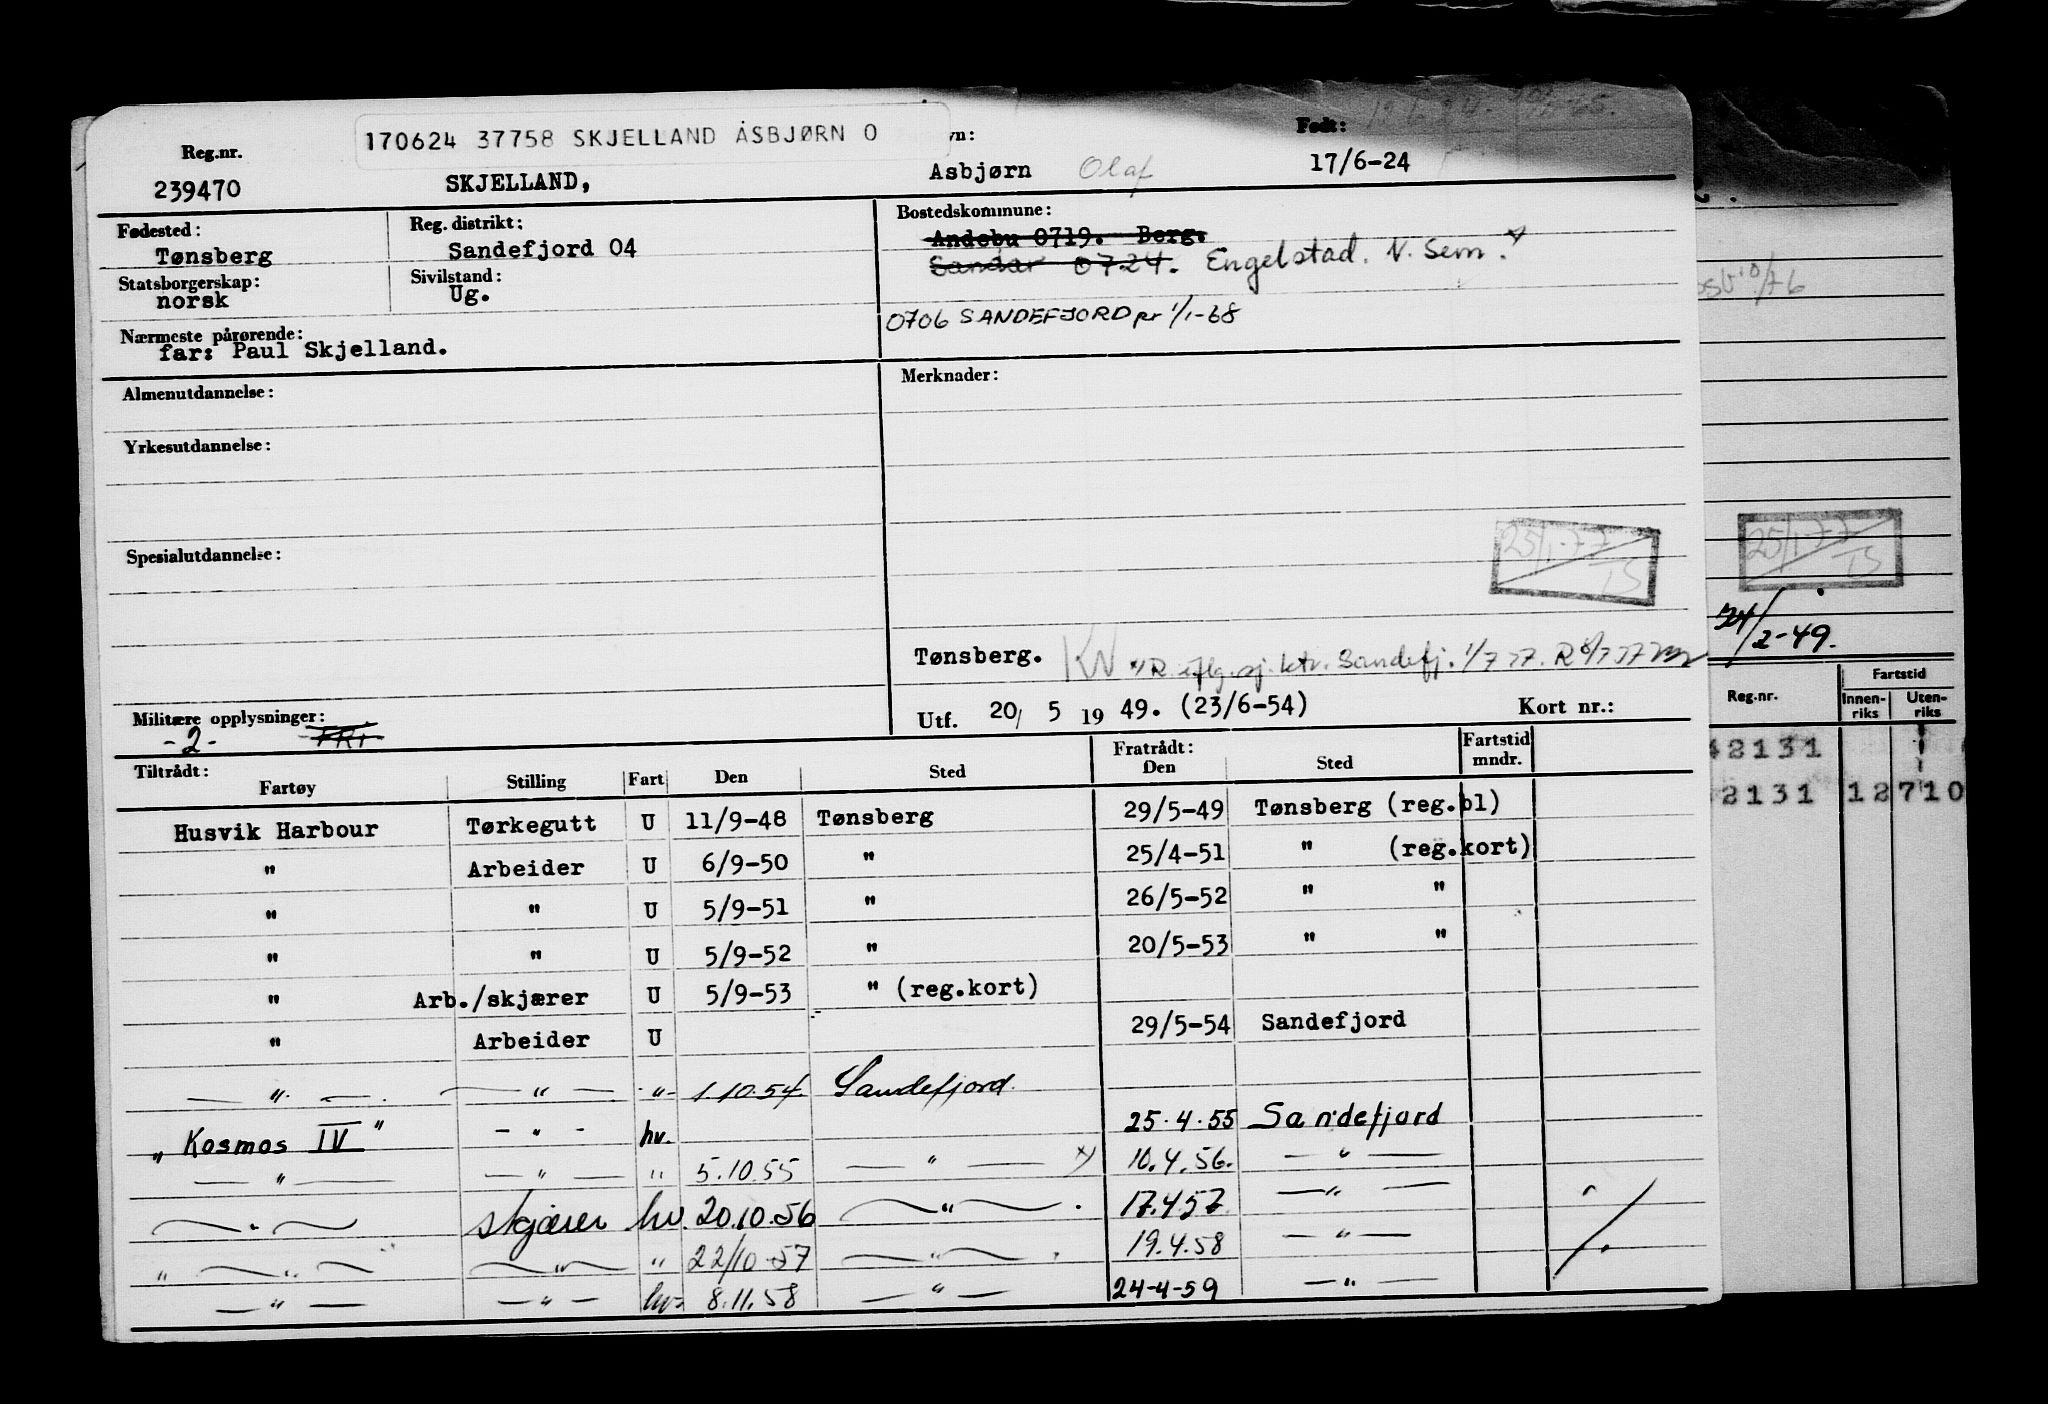 170624 37758 SKJELLAND ASBJØRN O
Reg.nr. vn: Født:
239470 SKJELLAND, Asbjørn Olaf 17/6-24
Fødested: Reg. distrikt: Bostedskommune:
Tønsberg Sandefjord 04 Andebu 0719. Berg.
Sandar 0724. Engelstad. N. Sem.
Statsborgerskap: Sivilstand:
norsk Ug.
0706 SANDEFJORD pr 1/1-68
Nærmeste pårørende:
far: Paul Skjelland.
Almenutdannelse: Merknader:
Yrkesutdannelse:
Spesialutdannelse:
25/1-77
Tønsberg. KN sj. ktr. Sandefj. 1/7 77.
Militære opplysninger: Utf. 20/ 5 19 49. (23/6-54) Kort nr.:
-2-
Tiltrådt: Fratrådt: Fartstid
Fartøy Stilling Fart Den Sted Den Sted mndr.
Husvik Harbour Tørkegutt U 11/9-48 Tønsberg 29/5-49 Tønsberg (reg.bl)
" Arbeider U 6/9-50 " 25/4-51 " (reg.kort)
" " U 5/9-51 " 26/5-52 " "
" " U 5/9-52 " 20/5-53 " "
" Arb./skjærer U 5/9-53 " (reg.kort)
" Arbeider U 29/5-54 Sandefjord
— " — — " — " 1.10.54. Sandefjord.
„ Kosmos IV " — " — hv. 25.4.55 Sandefjord
— " — — " — " 5.10.55 — " — x) 10.4.56. — " —
— " — skjærer hv. 20.10.56 — " — . 17.4.57. — " —
— " — — " — " 22/10-57 — " — 19.4.58 — " —
— " — — " — hv- 8.11.58 — " — 24-4-59 — " —
10/76
25/1-77
15
24/2-49.
Reg.nr. Fartstid
Innen-riks Uten-riks
42131
2131 12 710